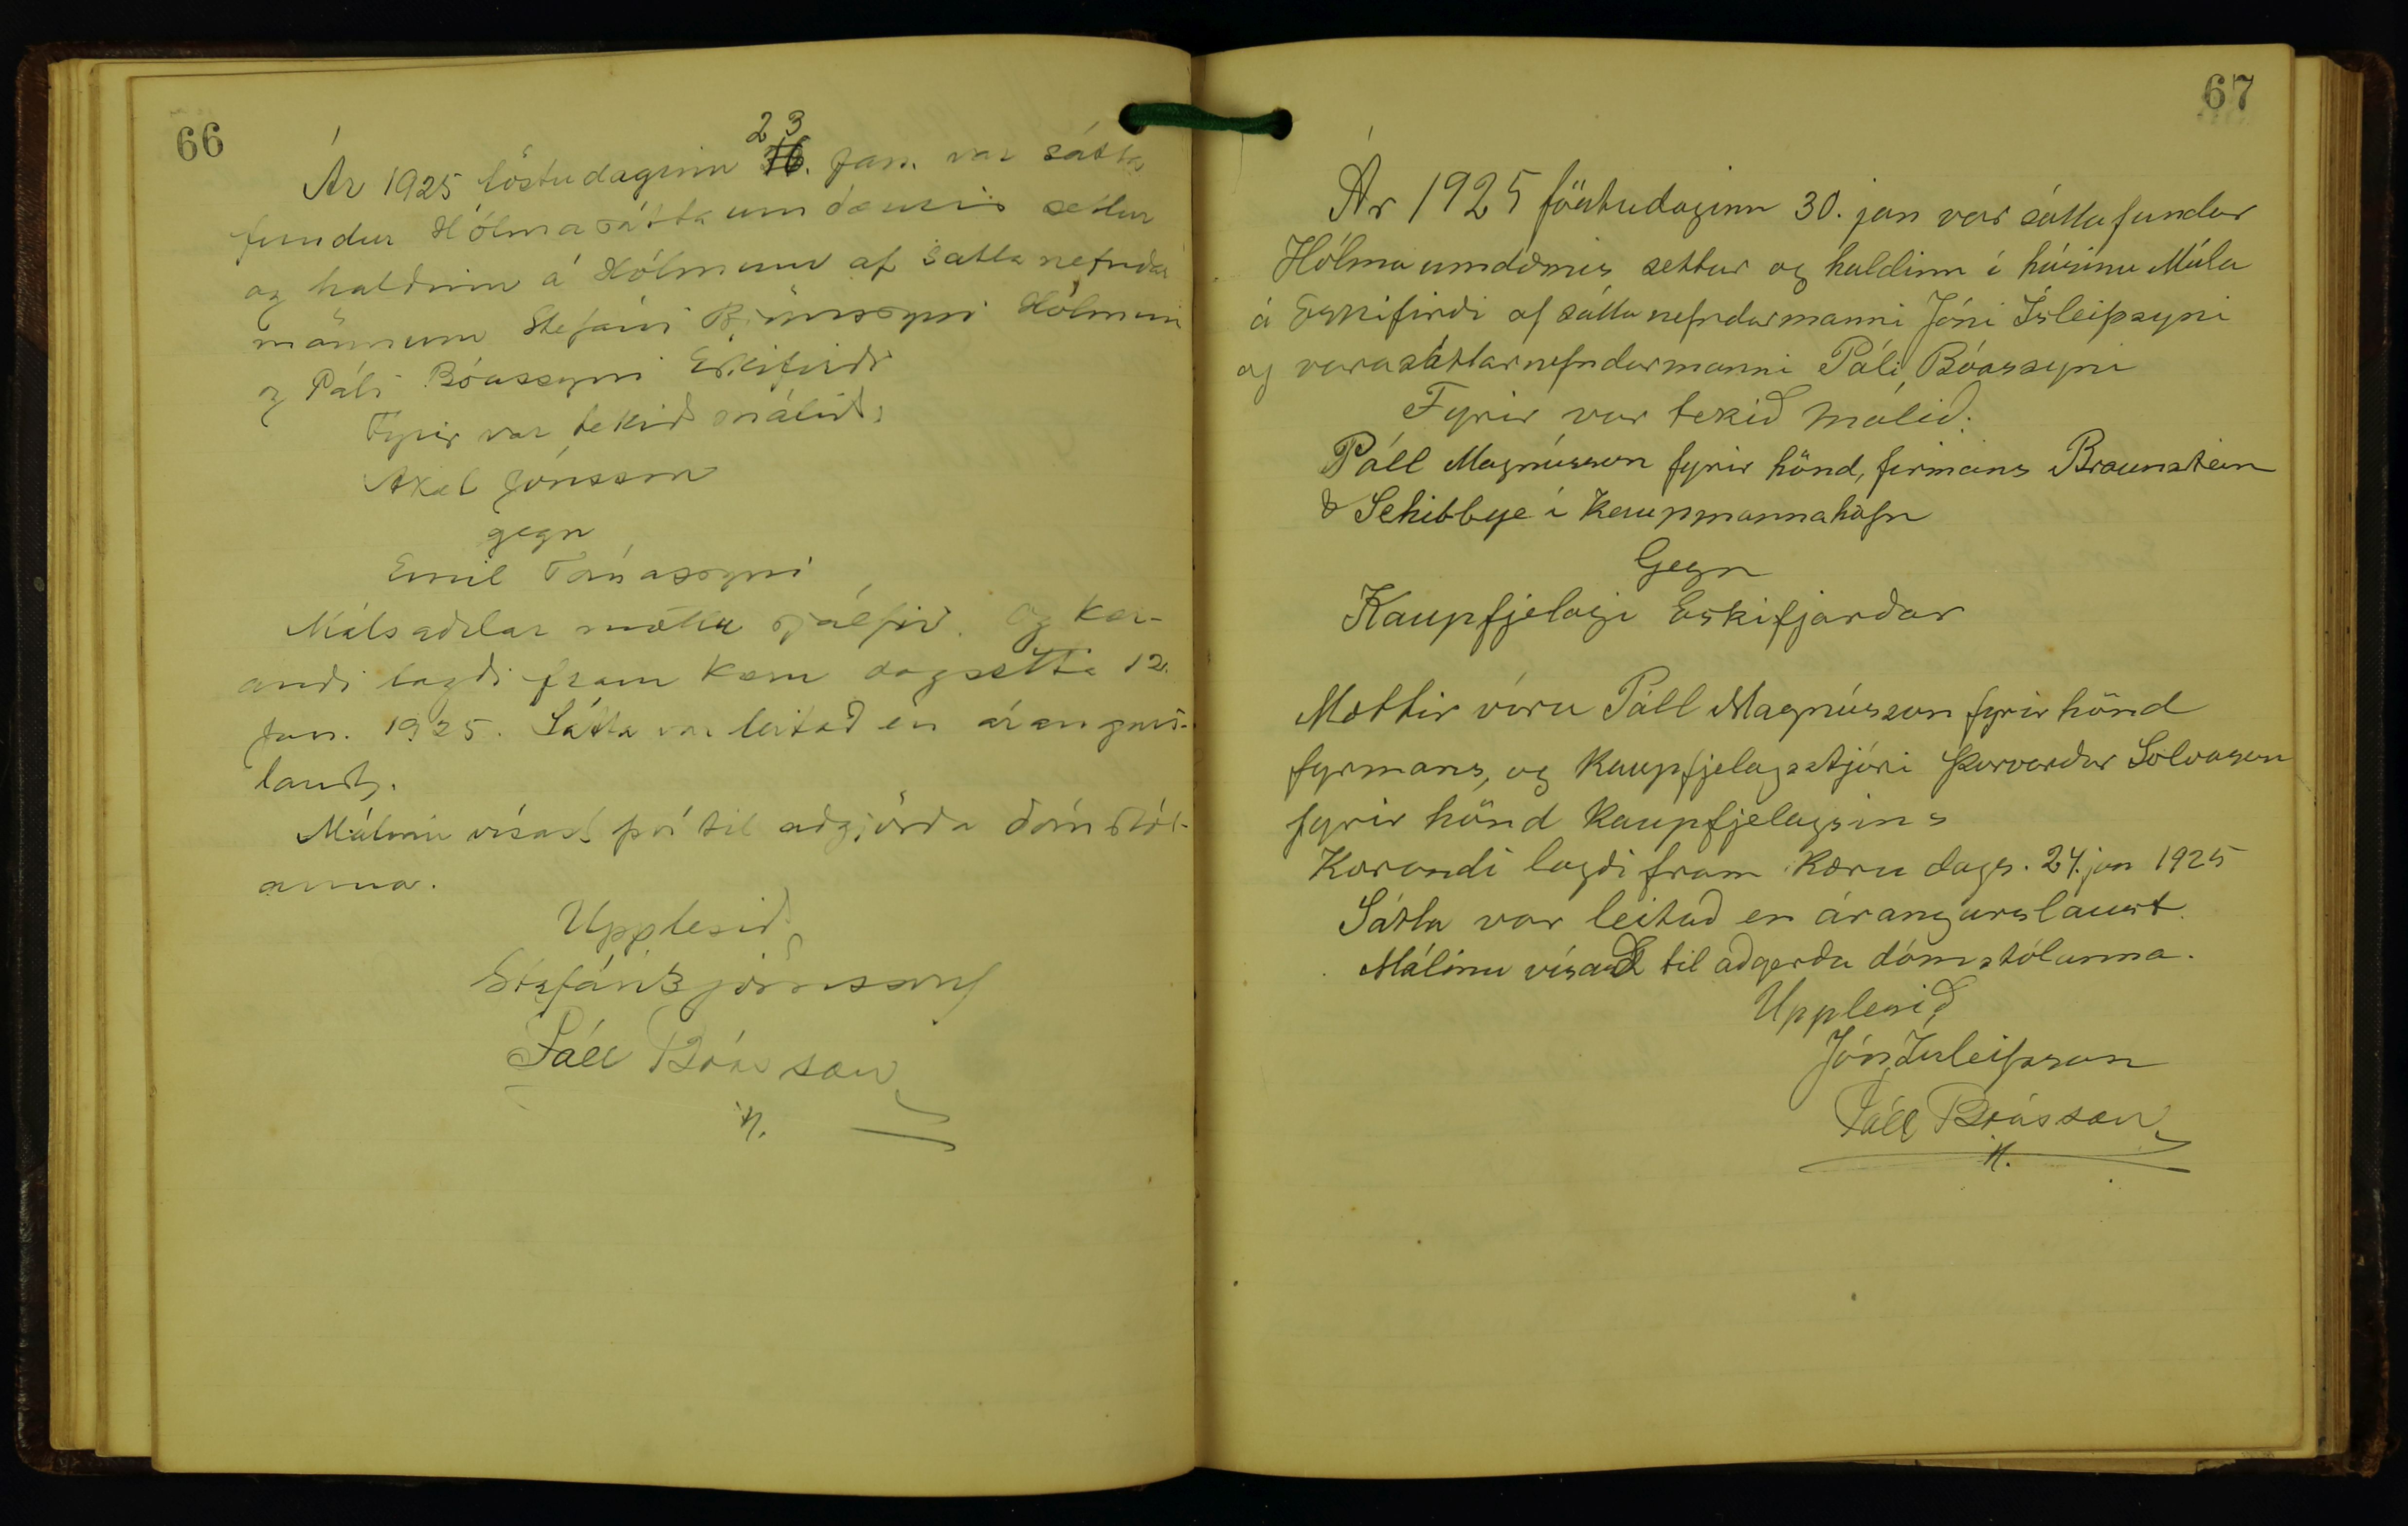 66
23
Ár 1925 föstudaginn 16. Jan. var sátta
fundur Hólmasáttaumdæmis settur
og haldinn á Hólmum af sáttanefndar
mönnum Stefáni Björnssyni Hólmum
og Páli Bóassyni Eskifirði
Fyrir var tekið málið:
Axel Jónsson
gegn
Emil Tómassyni
Málsaðilar mættu sjálfir. Og kær-
andi lagði fram kæru dagsetta 12.
Jan. 1925. Sátta var leitað en árangurs-
laust.
Málinu vísast því til aðgjörða dómstól-
anna.
Upplesið
Stefán Björnsson
Páll Bóasson
67
Ár 1925 föstudaginn 30. jan var sáttafundur
Hólmaumdæmis settur og haldinn í húsinu Múla
á Eskifirði af sáttanefndarmanni Jóni Ísleifssyni
og varasáttarnefndarmanni Páli Bóassyni
Fyrir var tekið málið:
Páll Magnússon fyrir hönd, firmans Braunstein
& Schibbye í Kaupmannahöfn
Gegn
Kaupfjelagi Eskifjarðar
Mættir vóru Páll Magnússon fyrir hönd
fyrmans, og Kaupfjelagsstjóri Þorvarður Sölvason
fyrir hönd Kaupfjelagsins
Kærandi lagði fram kæru dags. 24. jan 1925
Sátta var leitað en árangurslaust.
Málinu vísað til aðgerða dómstólanna.
Upplesið
Jón Ísleifsson
Páll Bóasson